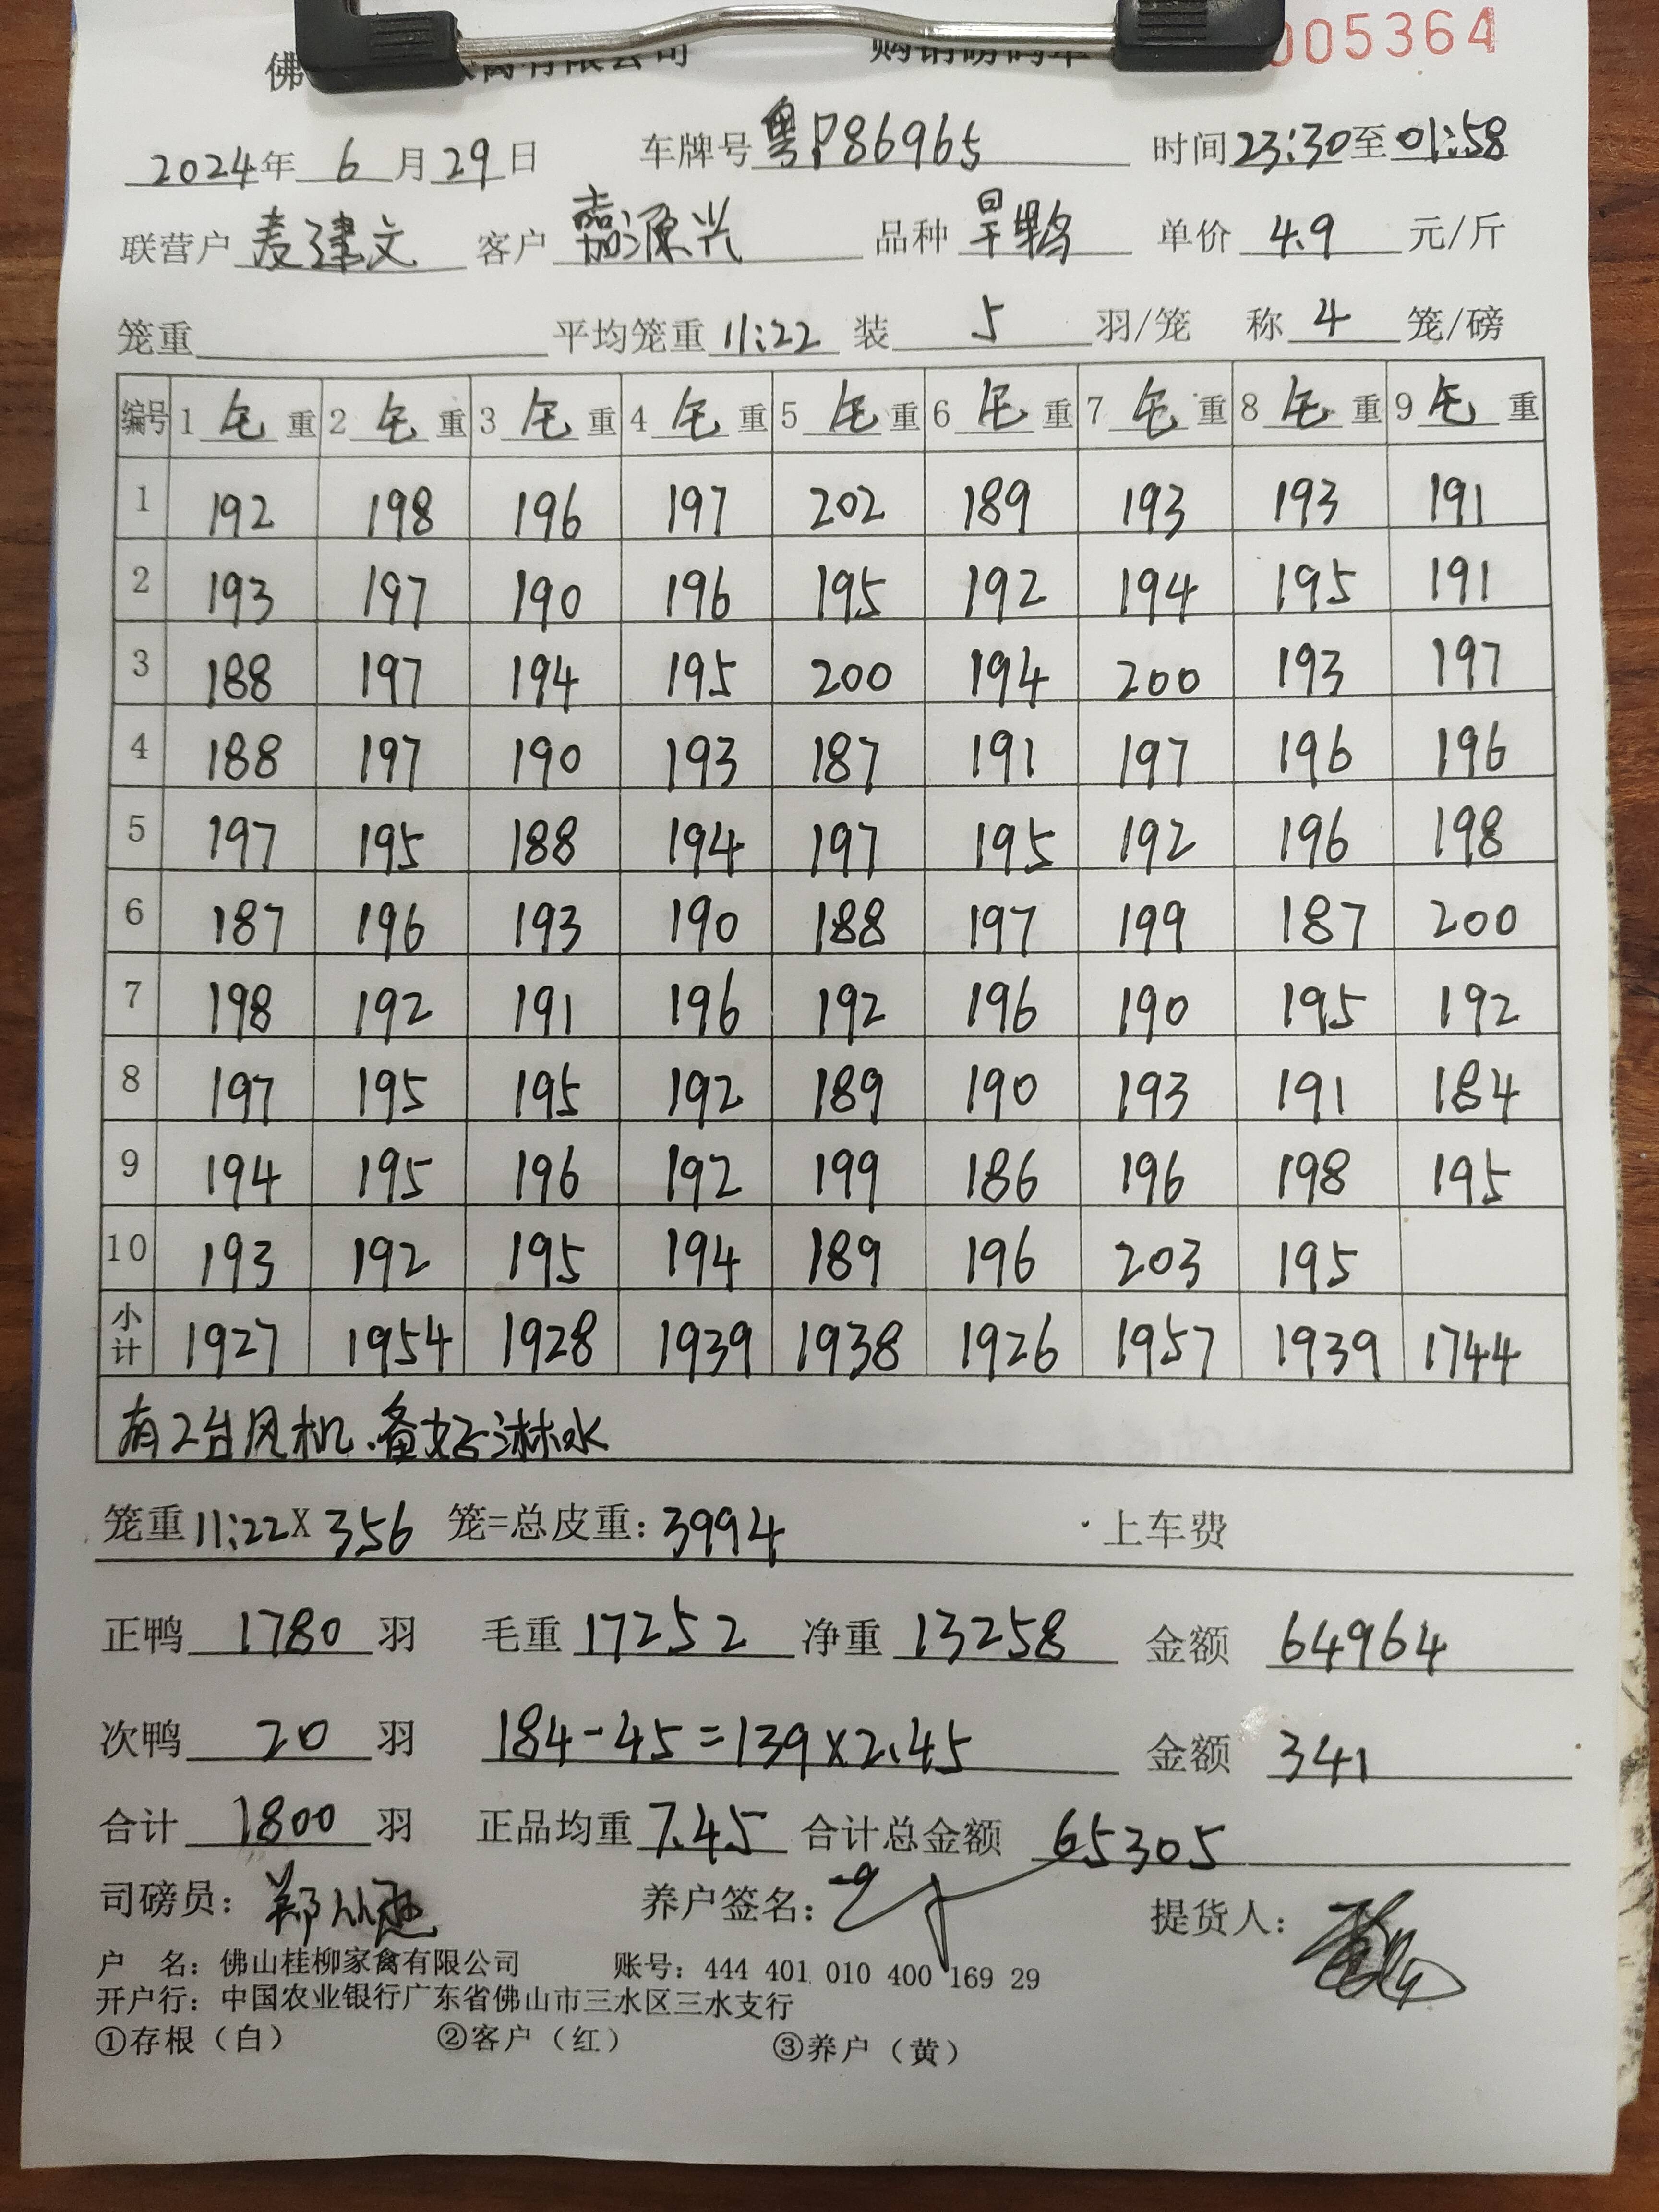 佛 禽有限公司 购销磅码单 005364
2024年 6 月 29 日 车牌号 粤P86965 时间 23:30 至 01:58
联营户 麦建文 客户 嘉源兴 品种 旱鸭 单价 4.9 元/斤
笼重 平均笼重 11:22 装 5 羽/笼 称 4 笼/磅
编号 1 毛 重 2 毛 重 3 毛 重 4 毛 重 5 毛 重 6 毛 重 7 毛 重 8 毛 重 9 毛 重
1 192 198 196 197 202 189 193 193 191
2 193 197 190 196 195 192 194 195 191
3 188 197 194 195 200 194 200 193 197
4 188 197 190 193 187 191 197 196 196
5 197 195 188 194 197 195 192 196 198
6 187 196 193 190 188 197 199 187 200
7 198 192 191 196 192 196 190 195 192
8 197 195 195 192 189 190 193 191 184
9 194 195 196 192 199 186 196 198 195
10 193 192 195 194 189 196 203 195
小计 1927 1954 1928 1939 1938 1926 1957 1939 1744
有2台风机、备好淋水
笼重 11:22 X 356 笼=总皮重: 3994 上车费
正鸭 1780 羽 毛重 17252 净重 13258 金额 64964
次鸭 20 羽 184-45=139×2.45 金额 341
合计 1800 羽 正品均重 7.45 合计总金额 65305
司磅员: 郑 养户签名: 提货人:
户 名: 佛山桂柳家禽有限公司 账号: 444 401 010 400 169 29
开户行: 中国农业银行广东省佛山市三水区三水支行
①存根（白） ②客户（红） ③养户（黄）